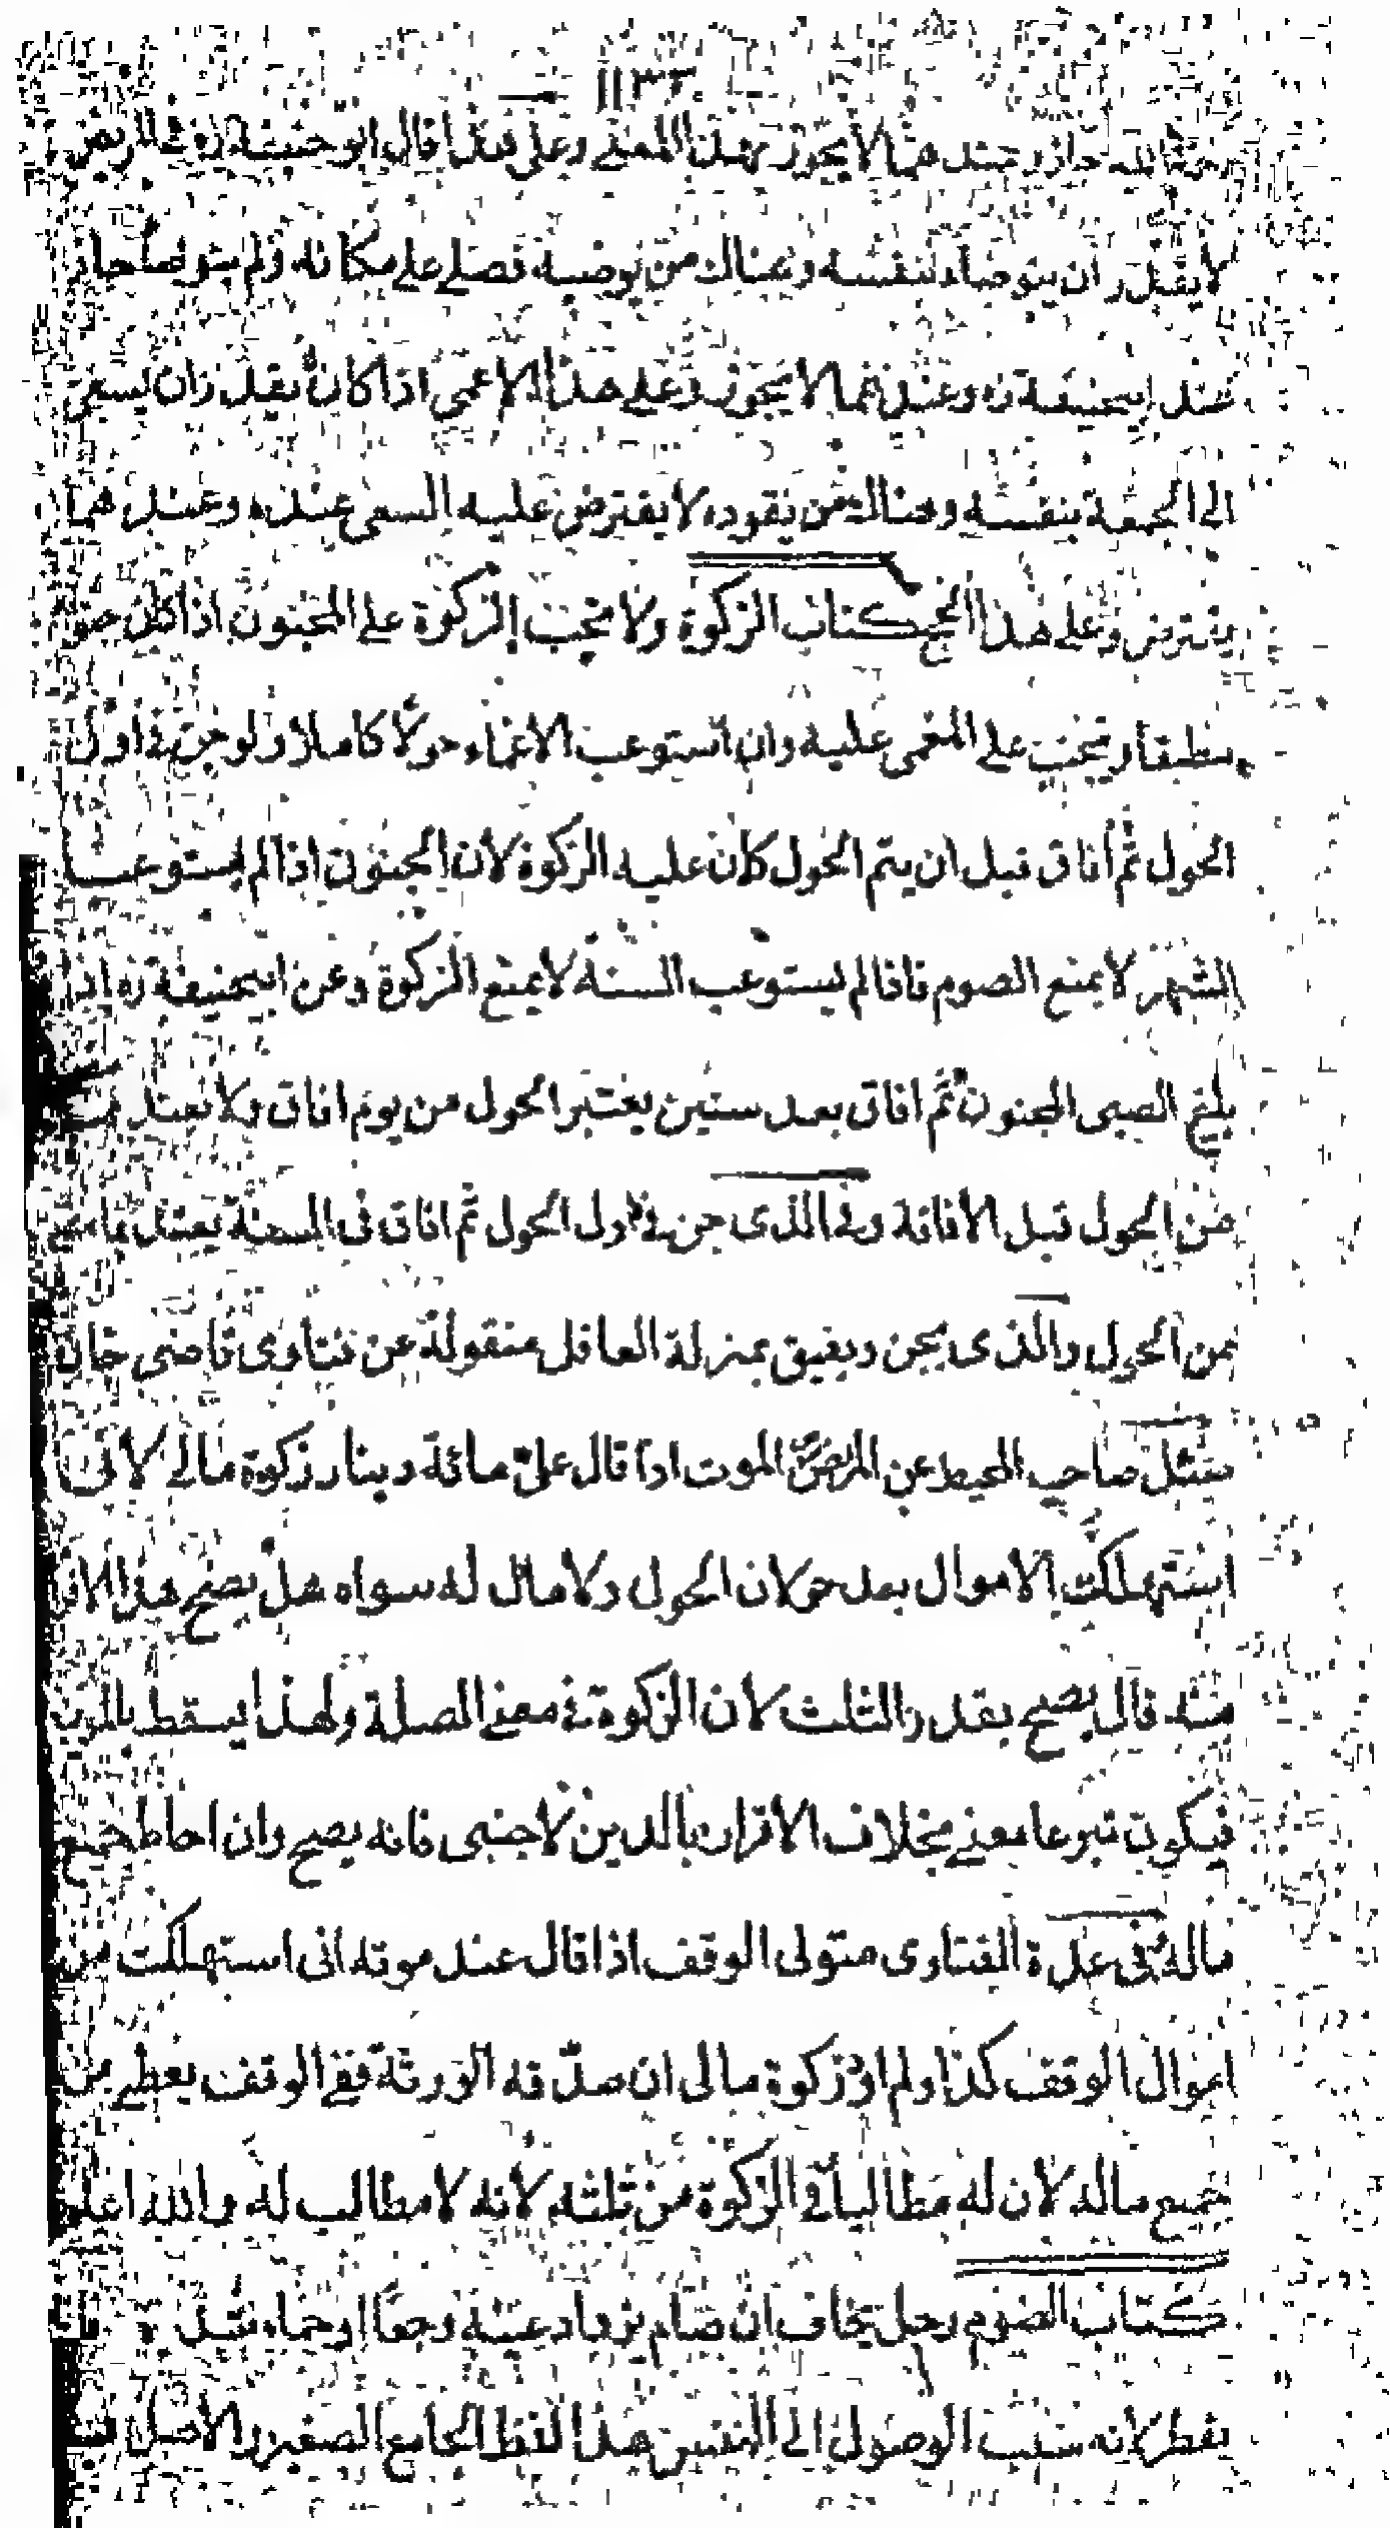 ١١٣٢
رحمة الله جاز وعندهما لا يجوز بهذا المعنى وعلى هذا قال ابو حنيفة ره في المريض
لا يقدر ان يتوضأ بنفسه وهناك من يوضيه فصلى على مكانه ولم يتوضأ جاز
عند ابيحنيفة ره وعندهما لا يجوز وعلى هذا الاعمى اذا كان يقدر ان يسعى
الى الجمعة بنفسه وهناك من يقوده لا يفترض عليه السعى عنده وعندهما
يفترض وعلى هذا الحج كتاب الزكوة ولا تجب الزكوة على المجنون اذا كان جنو
مطبقا وتجب على المغمى عليه وان استوعب الاغماء حولا كاملا ولو جن في اول
الحول ثم افاق قبل ان يتم الحول كان عليه الزكوة لان الجنون اذا لم يستوعب
الشهر لا يمنع الصوم فاذا لم يستوعب السنة لا يمنع الزكوة وعن ابيحنيفة ره اذ
بلغ الصبى المجنون ثم افاق بعد سنين يعتبر الحول من يوم افاق ولا يعتد
من الحول قبل الافاقة وفي الذى جن في اول الحول ثم افاق في السنة يعتد بما مضى
من الحول والذى يجن ويفيق بمنزلة العاقل منقولة عن فتاوى قاضى خان
سئل صاحب المحيط عن المريض الموت اذا قال على مائة دينار زكوة مالى لانى
استهلكت الاموال بعد حولان الحول ولا مال له سواه هل يصح هذا الاقر
منه قال يصح بقدر الثلث لان الزكوة في معنى الصلة ولهذا يسقط بالموت
فيكون تبرعا معنى بخلاف الاقرار بالدين لاجنبى فانه يصح وان احاط جميع
ماله في عدة الفتاوى متولى الوقف اذا قال عند موته انى استهلكت من
اموال الوقف كذا ولم اؤد زكوة مالى ان صدقه الورثة ففى الوقف يعطى من
جميع ماله لان له مطالبا في الزكوة من ثلثه لانه لا مطالب له والله اعلم
كتاب الصوم رجل يخاف ان صام يزداد عينه وجعا او حماه شدة
يفطر لانه سبب الوصول الى النفس هذا لفظ الجامع الصغير والاصل